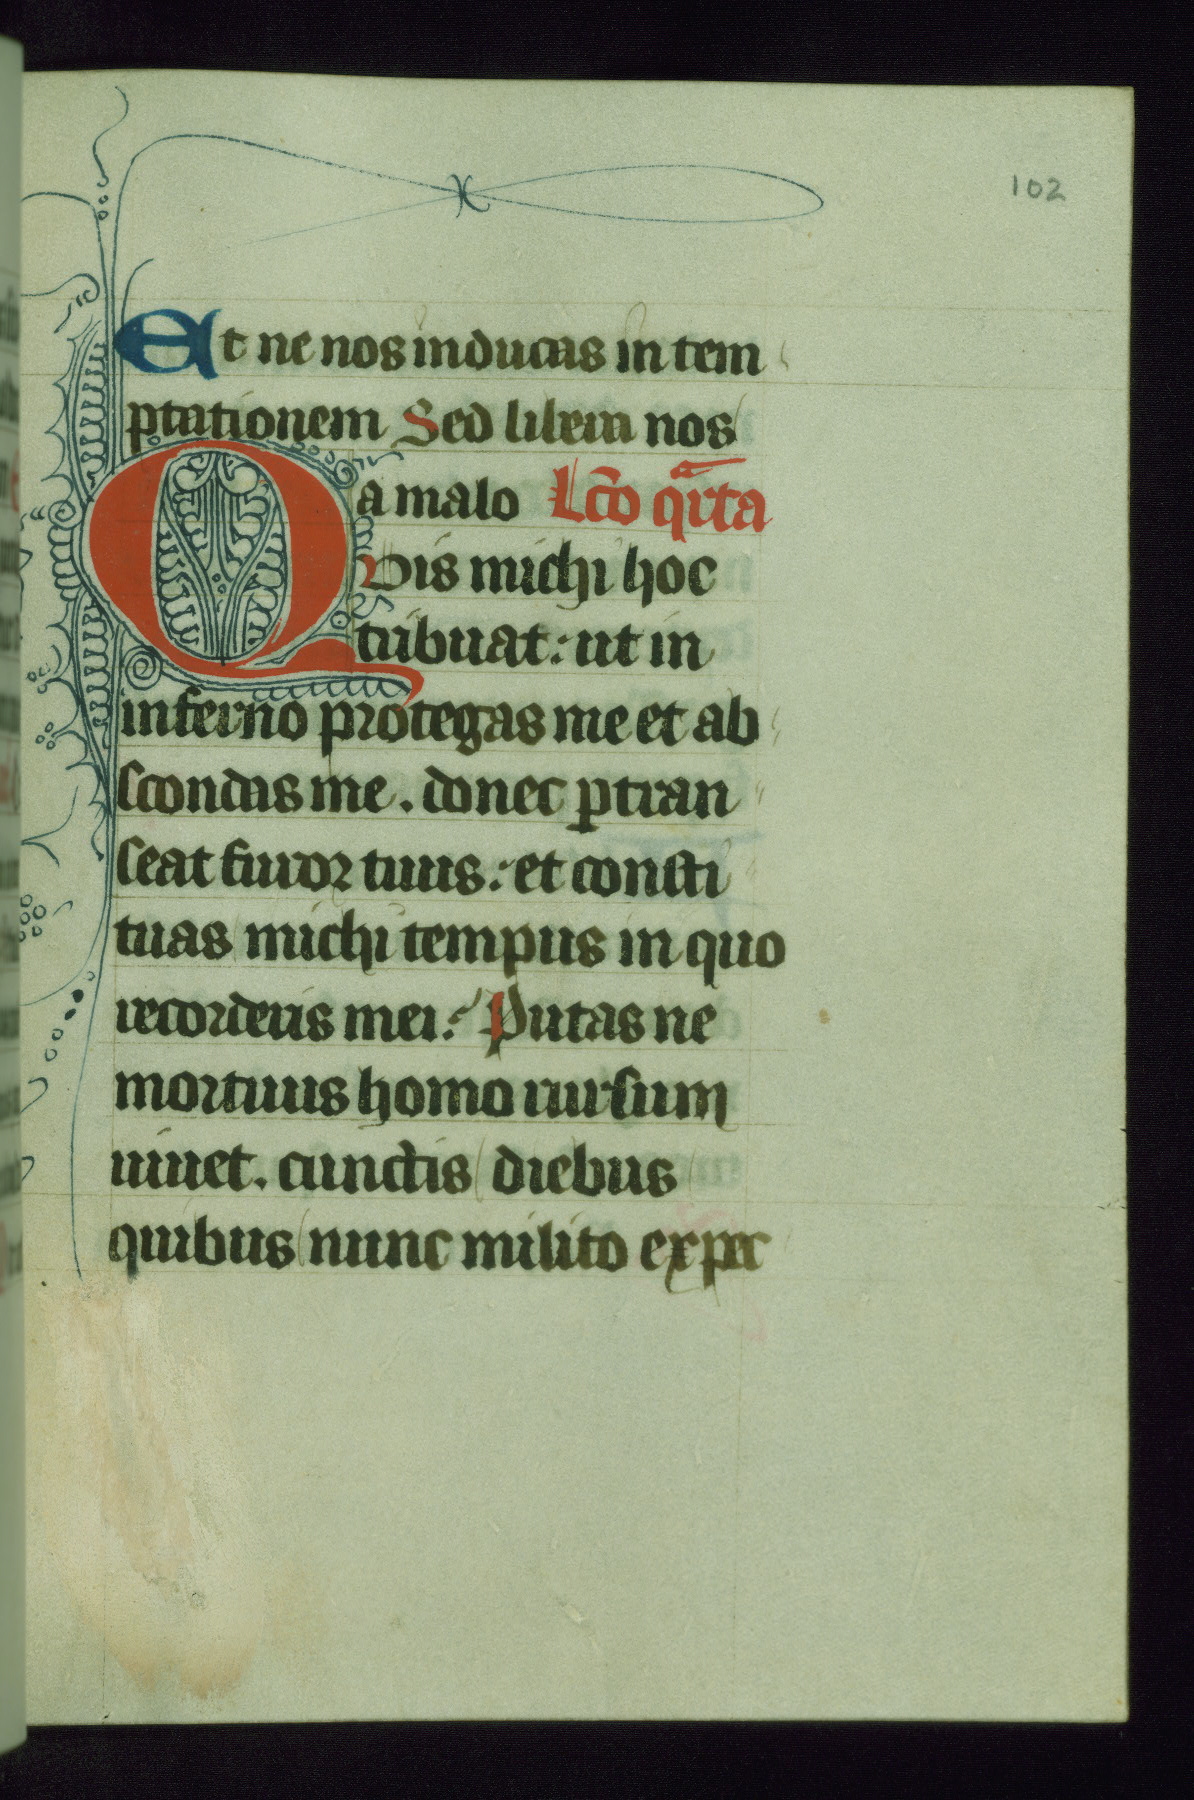 102
Et ne nos inducas in tem
ptationem Sed libera nos
a malo Lc̄o qr̄ta
Quis michi hoc
tribuat: ut in
inferno protegas me et ab
scondas me. donec ꝑtran
seat furor tuus: et consti
tuas michi tempus in quo
recorderis mei: Putas ne
mortuus homo rursum
uiuet. cunctis diebus
quibus nunc milito expec